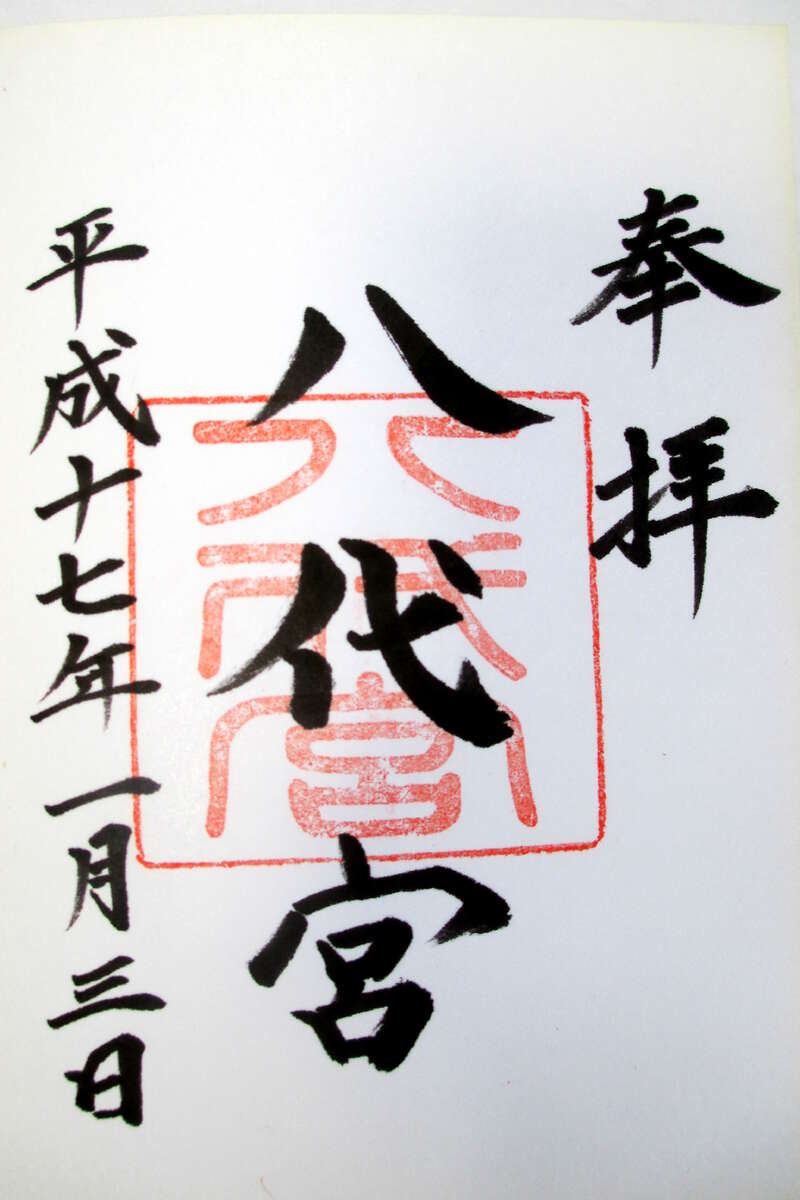 奉拝
八代宮
平成十七年一月三日